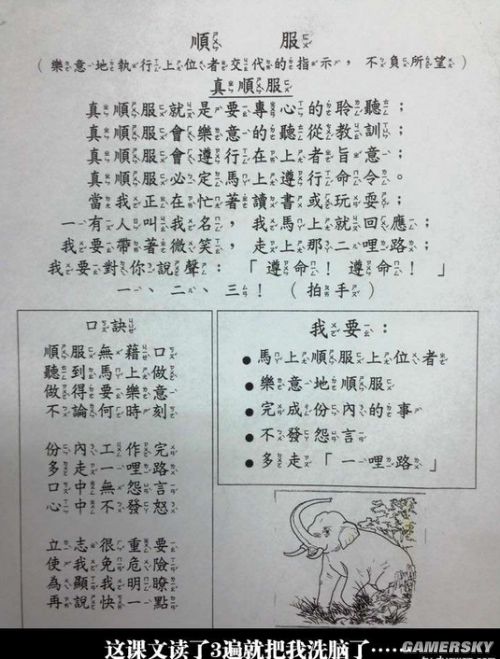 順服
(樂意地執行上位者交代的指示，不負所望)
真順服
真順服就是要專心的聆聽；
真順服會樂意的聽從教訓；
真順服會遵行在上者旨意；
真順服必定馬上遵行命令。
當我正在忙著讀書或玩耍；
一有人叫我名，我馬上就回應；
我要帶著微笑，走上那二哩路；
我要對你說聲：「遵命！遵命！」
一、二、三！(拍手)
口訣
順服無藉口
聽到馬上做
做得要樂意
不論何時刻
份內工作完
多走一哩路
口中無怨言
心中不發怒
立志很重要
使我免危險
為顯我明瞭
再說快一點
我要：
●馬上順服上位者
●樂意地順服
●完成份內的事
●不發怨言
●多走「一哩路」
这课文读了3遍就把我洗脑了······
GAMERSKY